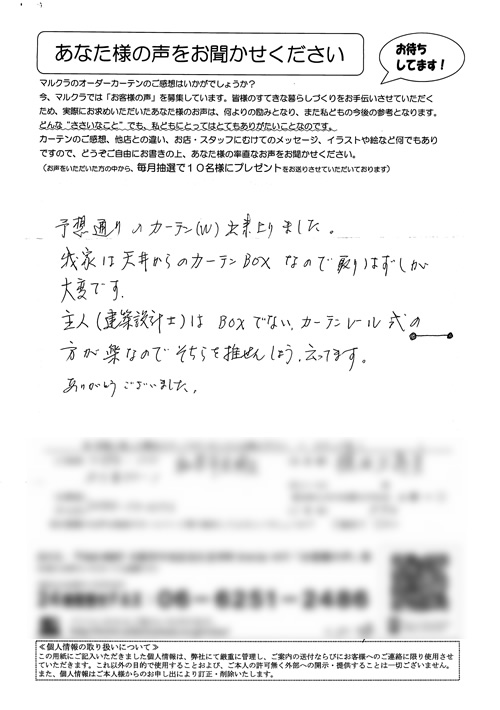 あなた様の声をお聞かせください
お待ち
してます！
マルクラのオーダーカーテンのご感想はいかがでしょうか？
今、マルクラでは「お客様の声」を募集しています。皆様のすてきな暮らしづくりをお手伝いさせていただく
ため、実際にお求めいただいたあなた様のお声は、何よりの励みとなり、また私どもの今後の参考となります。
どんな“ささいなこと”でも、私どもにとってはとてもありがたいことなのです。
カーテンのご感想、他店との違い、お店・スタッフにむけてのメッセージ、イラストや絵など何でもあり
ですので、どうぞご自由にお書きの上、あなた様の率直なお声をお聞かせください。
（お声をいただいた方の中から、毎月抽選で１０名様にプレゼントをお送りさせていただいております）
予想通りのカーテン(W)出来上りました。
我家は天井からのカーテンBOXなので取りはずしが
大変です.
主人(建築設計士)はBOXでない、カーテンレール式の
方が楽なのでそちらを推せんしよう、云ってます。
ありがとうございました。
06-6251-2486
≪個人情報の取り扱いについて≫
この用紙にご記入いただきました個人情報は、弊社にて厳重に管理し、ご案内の送付ならびにお客様へのご連絡に限り使用させ
ていただきます。これ以外の目的で使用することおよび、ご本人の許可無く外部への開示・提供することは一切ございません。
また、個人情報はご本人様からのお申し出により訂正・削除いたします。